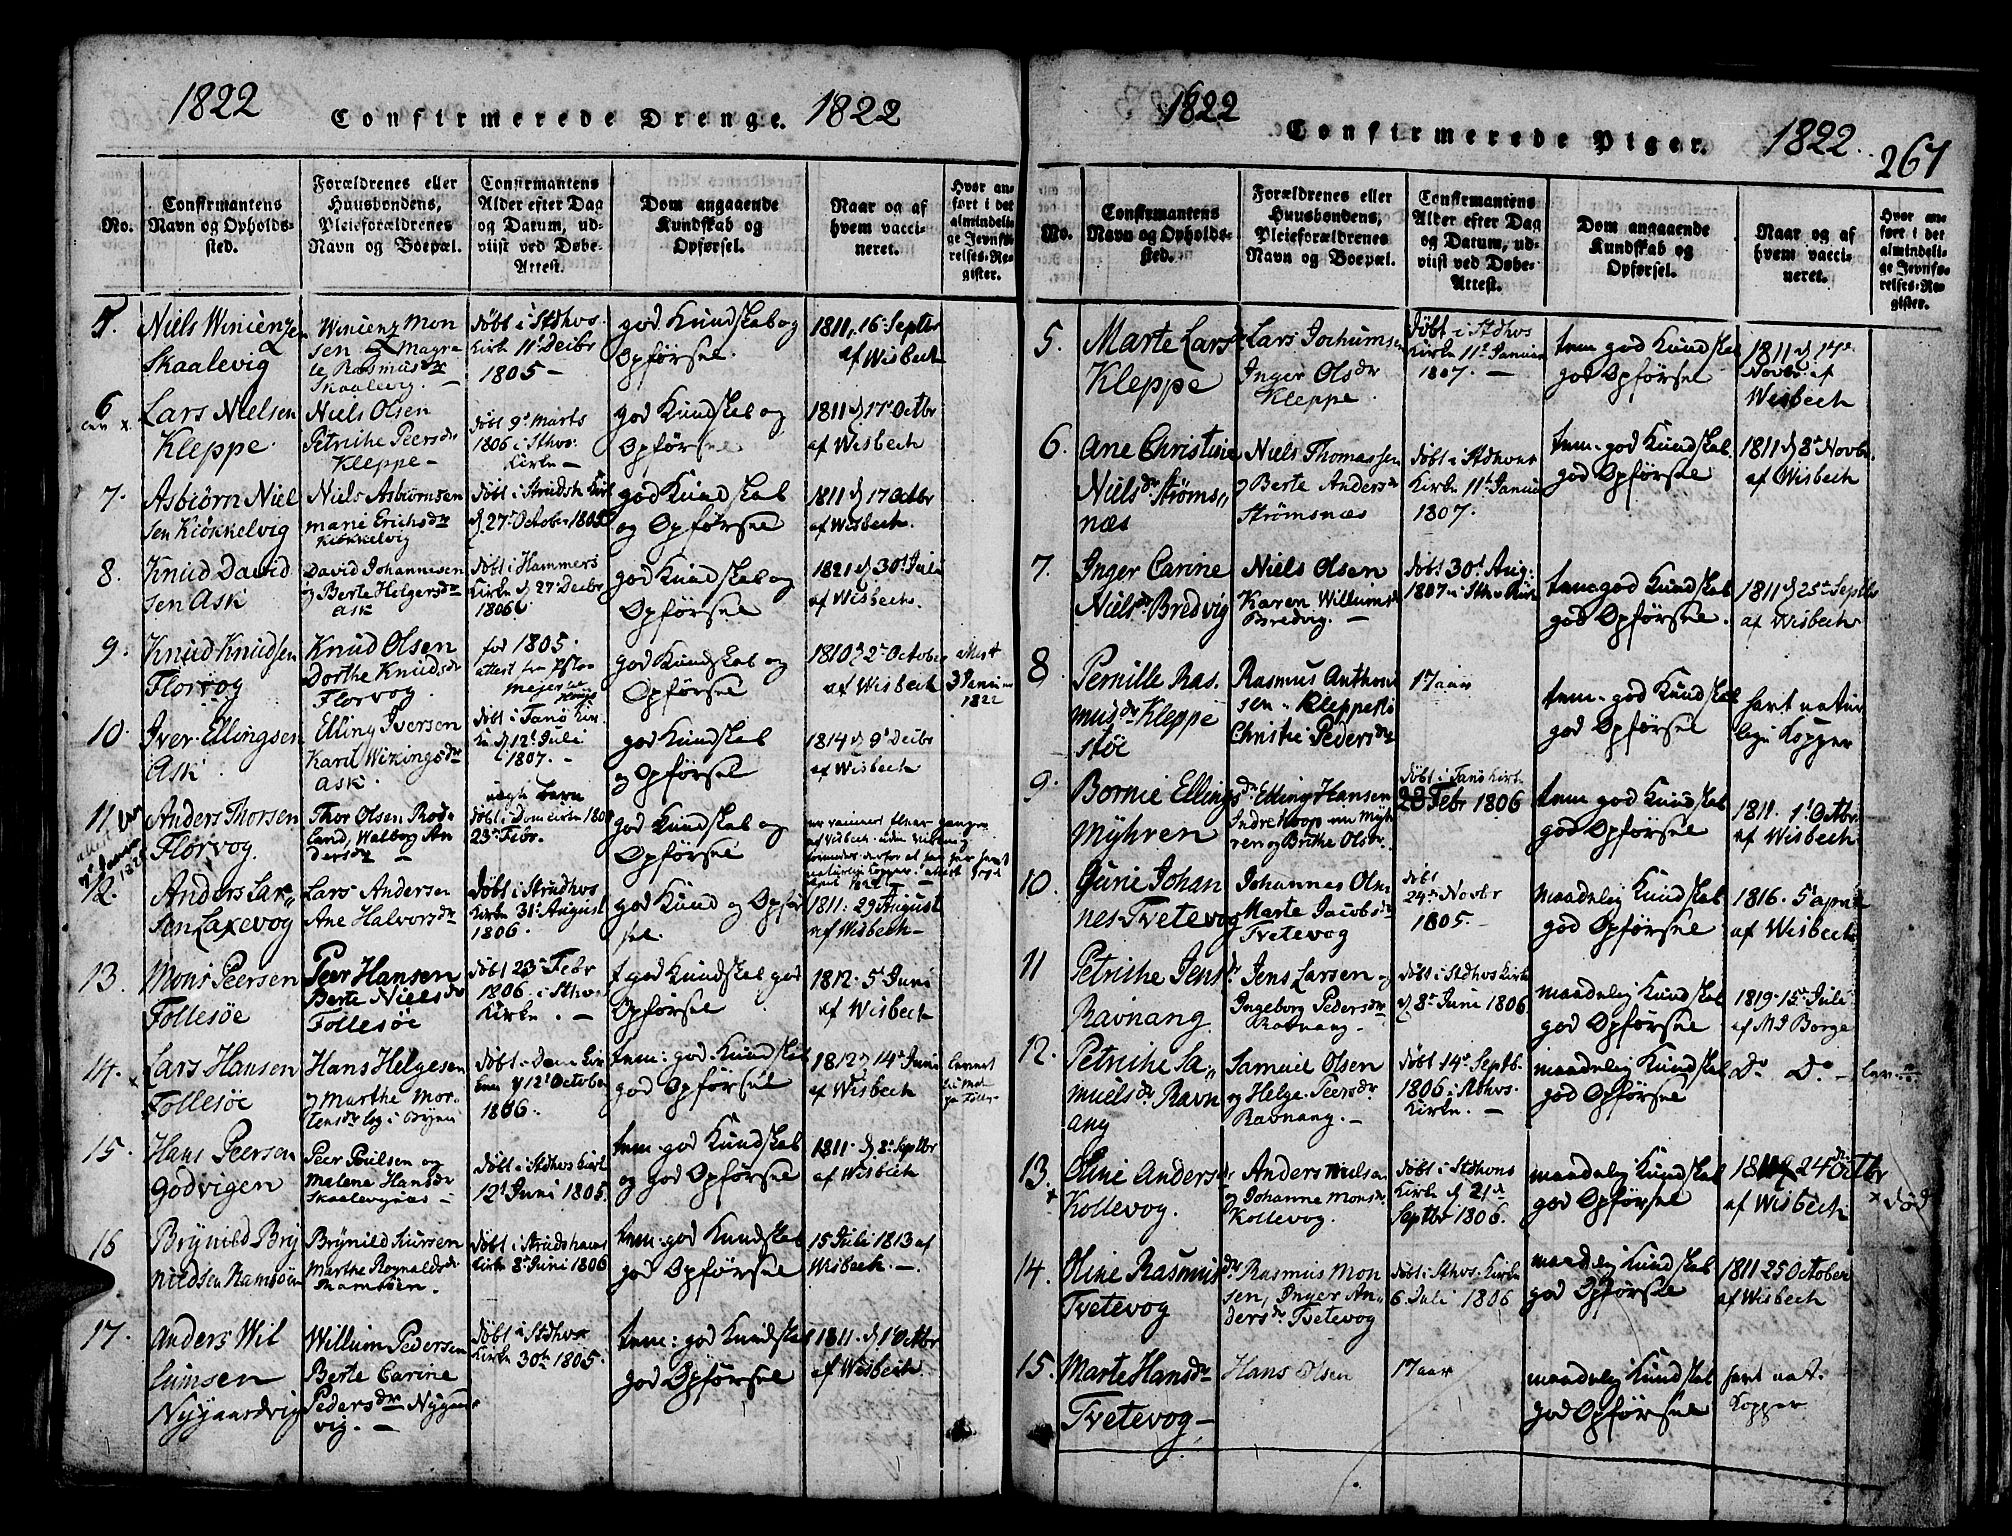 1822
Confirmerede Drenge.
1822
No.
Confirmantens
Navn og Opholds-
sted.
Forældrenes eller
Huusbondens,
Pleieforældrenes
Navn og Boepæl.
Confirmantens
Alder efter Dag
og Datum, ud-
viist ved Døbe-
Attest.
Dom angaaende
Kundskab og
Opførsel.
Naar og af
hvem vacci-
neret.
Hvor an-
ført i det
almindeli-
ge Jevnfø-
relses-Re-
gister.
5.
Niels Wincenzen
Skaalevig
Wincenz Mon
sen og Magre
te Rasmusdr
Skaalevig.
døbt i Stdhvs.
Kirke 11t Decbr
1805 -
god Kundskab og
Opførsel.
1811, 16 Septbr
af Wisbech
6
Lars Nielsen
Kleppe.
Niels Olsen
Petrithe Peersdr
Kleppe -
døbt 9de Marts
1806 i Sthvs.
Kirke -
god Kundskab og
Opførsel
1811 d 17de Octbr
af Wisbech
7.
Asbiørn Niel
sen Kiøkkelvig
Niels Asbiørnsen
Marie Erichsdr
Kiøkkelvig
døbt i Strudsh Kirk
d. 27de Octobr 1805
god Kundskab
og Opførsel
1811 d 17 Octbr
af Wisbech
8.
Knud David
sen Ask
David Johannesen
og Berte Helgersdr
Ask
døbt i Hammers
Kirke d 27 Decbr
1806
god Kundskab og
Opførsel
1821 d 30t Juli
af Wisbech.
9.
Knud Knudsen
Florvog
Knud Olsen
Dorthe Knudsdr
Florvog.
fød 1805.
attest fra
god Kundskab og
Opførsel
1810 d 2de October
af Wisbech
3 Januar
1822
10.
Iver Ellingsen
Ask.
Elling Iversen
Karil Wikingsdr
Ask.
døbt i Fanø Kir
ke d 12t Juli
1807. -
god Kundskab
og Opførsel
1814 d 9de Decbr
af Wisbech
11.
Anders Thorsen
Florvog.
Thor Olsen Rod-
land, Walborg An
dersdr -
uægte barn
døbt i Domkirke 180
23de Febr.
god Kundskab og
Opførsel
12.
Anders Lar„
sen Laxevog
Lars Andersen
Ane Halvorsdr
døbt i Strudhvs
Kirke 31t August
1806.
god Kund og Opfør
sel.
1811. 29 August
af Wisbech -
13.
Mons Peersen
Follesøe
Peer Hansen
Berte Nielsdr
Follesøe
døbt 23de Febr
1806 i Sthvs
Kirke. -
t god Kundskab god
Opførsel
1812. 5t Juni
af Wisbech
14.
Lars Hansen
Follesøe
Hans Helgesen
og Marthe Mor-
tensdr
døbt i Dom Kir
ken d 12t October
1806.
tem: god Kundskab
god Opførsel
1812 d 14de Juni
af Wisbech
15.
Hans Peersen
Godvigen
Peer Poulsen og
Malena Hansdr
Skaalevignæs -
døbt i Stdhvs Kirk
12t Juni 1805.
tem: god Kundskab
og god Opførsel
1811. d 8de Septbr
af Wisbech
16
Brynild Bry
nildsen Ramsøen
Brynild Siursen
Marthe Reynaldsdr
Ramsøen.
døbt i Strudshavns
Kirke 8de Juni 1806
tem: god Kundskab
god Opførsel
15 Juli 1813 af
Wisbech. -
17.
Anders Wil
lumsen
Nygaardsvig
Willum Pedersen
Berte Carine
Pedersdr Nygaards
vig. -
døbt i Stdhvs
Kirke 30te 1805.
tem: god Kundskab
god Opførsel
1811. d 1t Octbr
af Wisbech
1822
Confirmerede Piger.
1822.
267
No.
Confirmantens
Navn og Opholds-
sted.
Forældrenes eller
Huusbondens,
Pleieforældrenes
Navn og Boepæl.
Confirmantens
Alder efter Dag
og Datum, ud-
viist ved Døbe-
Attest.
Dom angaaende
Kundskab og
Opførsel.
Naar og af
hvem vacci-
neret.
Hvor an-
ført i det
almindeli-
ge Jevnfø-
relses-Re-
gister.
5.
Marte Larsdr
Kleppe
Lars Jochumsen
Inger Olsdr
Kleppe.
døbt i Stdhvs
Kirke 11t Januar
1807. -
tem god Kundskab
god Opførsel
1811 d 17de
Novbr af
Wisbech
6.
Ane Christine
Nielsdr Strøms„
næs
Niels Thomassen
og Berte Andersdr
Strømsnæs
døbt i Stdhvns
Kirke 11t Januar
1807.
tem. god Kundskab
god Opførsel
1811 d 8de Novbr.
af Wisbech
7.
Inger Carine
Nielsdr Bredvig
Niels Olsen
Karen Willumsdr
Bredvig. -
døbt 30t Aug:
1807 i Sthvs Kirk
tem god Kundskab
god Opførsel.
1811 d 25de Septbr
af Wisbech
8
Pernille Ras.
musdr Kleppe
støe
Rasmus Anthoni
sen Kleppestø
Christi Pedersdr
17 aar
tem. god Kundskab
god Opførsel
havt natur
lige Kopper
9.
Bornie Ellings
dr
Myhren
Elling Hansen
Indre Koop
og Brithe Olsdr.
døbt i Fanø Kirke
28 Febr 1806
tem god Kundskab
god Opførsel
1811. 1t Octbr
af Wisbech
10.
Guni Johan
nes Tvetevog
Johannes Olsen
Marte Jacobsdr
Tvetevog
døbt
24de Novbr
1805. -
maadelig Kundskab
god Opførsel
1816. 5t april
af Wisbech
11
Petrithe Jens
dr
Ravnang
Jens Larsen og
Ingeborg Pedersdr
Ravnang. -
døbt i Stdhvs Kirke
d 8de Juni 1806
maadelig Kundskab
god Opførsel
1819. 15de Juli
af M J Borge
12.
Petrithe Sa„
muelsdr Ravn
ang
Samuel Olsen
og Helge Peersdr
Ravnang. -
døbt 14de Septb.
1806 i Sthvs.
Kirke. -
maadelig Kundskab
god Opførsel
Do Do -
13.
Oline Andersdr
Kollevog.
Anders Nielsen
og Johanne Monsdr
Kollevog.
døbt i Stdhvns
Kirke d 21de
Septbr 1806.
maadelig Kundskab
god Opførsel
24de Octbr
af Wisbech
x død
14.
Oline Rasmus
dr
Tvetevog
Rasmus Mon
sen, Inger An„
dersdr Tvetevog
døbt i Sthvs. Kirke
6. Juli 1806
maadelig Kundskab
god Opførsel
1811 25 October
af Wisbech
15.
Marte Hansdr
Tvetevog -
Hans Olsen
17 aar
maadelig Kundskab
god Opførsel
havt nat.
Kopper